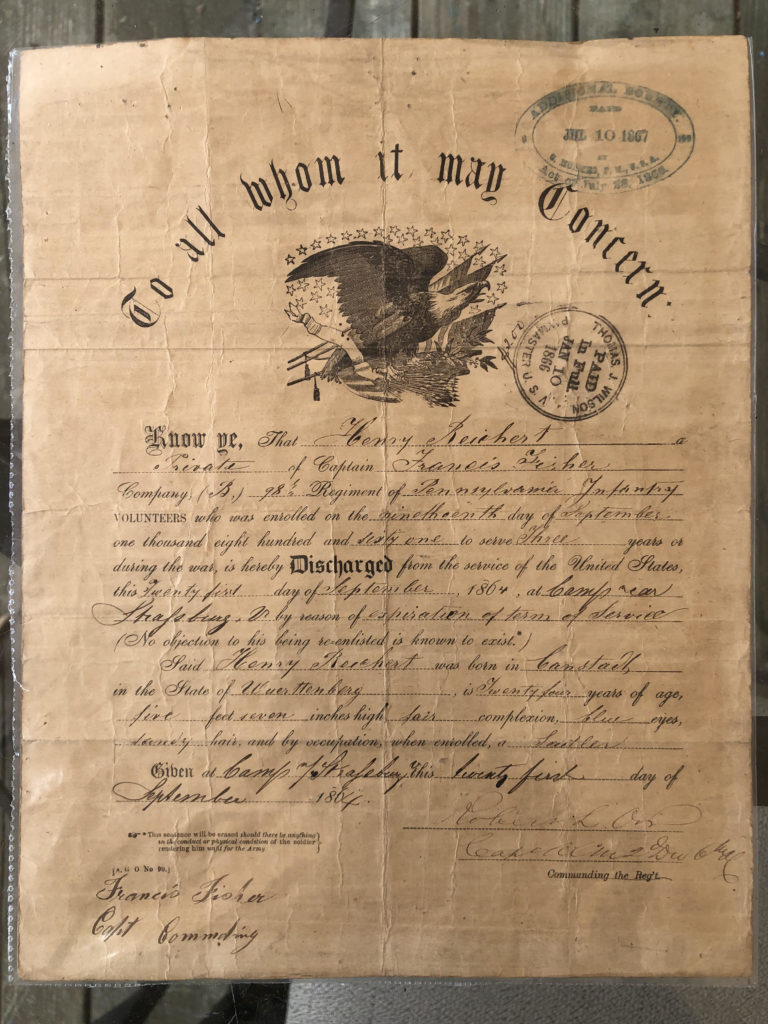 ADDITIONAL BOUNTY.
PAID
JUL 10 1867
Act of July 28, 1866.
To all whom it may Concern:
THOMAS J. WILSON
PAID
In Full
JAN 10
1866
PAYMASTER U. S. V.
Know ye, That Henry Reichert a
Private of Captain Francis Fisher
Company, (B.) 98th Regiment of Pennsylvania Infantry
VOLUNTEERS who was enrolled on the nineteenth day of September
one thousand eight hundred and sixty one to serve Three years or
during the war, is hereby Discharged from the service of the United States,
this Twenty first day of September, 1864, at Camp near
Strassburg, V. by reason of expiration of term of Service
(No objection to his being re-enlisted is known to exist.*)
Said Henry Reichert was born in Canstadt,
in the State of Wuerttenberg, is Twenty four years of age,
five feet seven inches high, fair complexion, blue eyes,
sandy hair, and by occupation, when enrolled, a Sattler
Given at Camp Strassburg, this twenty first day of
September 1864.
*This sentence will be erased should there be anything
in the conduct or physical condition of the soldier
rendering him unfit for the Army
[A. G. O No 99.]
Robert L Orr
Commanding the Reg't.
Francis Fisher
Capt Commding